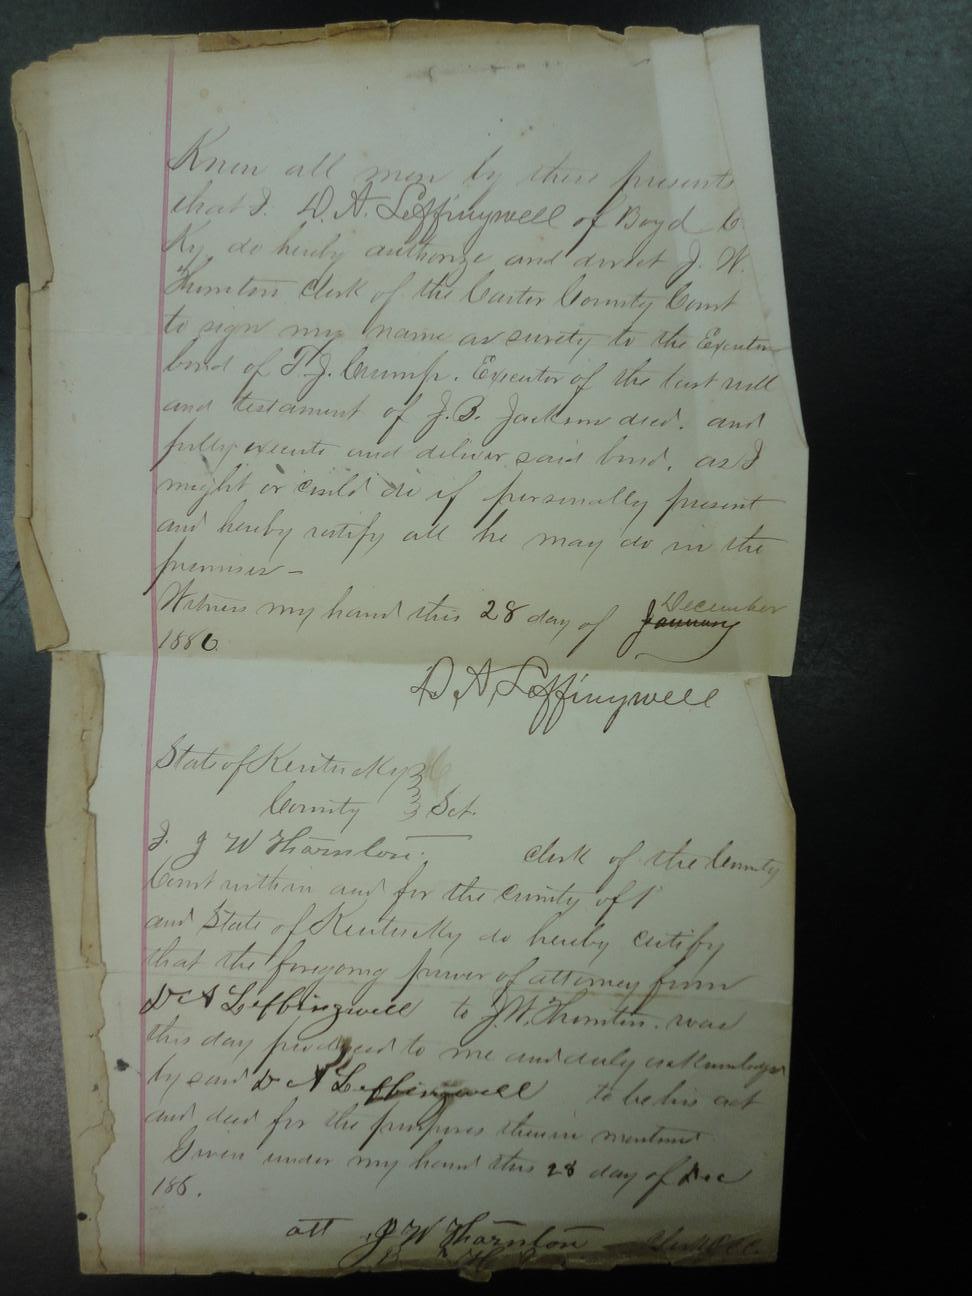 Know all men by these presents
that I. D. A. Leffingwell of Boyd Co
Ky do hereby authorize and direct J. W.
Thornton Clerk of the Carter County Court
to sign my name as surety to the Executor
bond of T. J. Crump. Executor of the last will
and testament of J. B. Jackson decd. and
fully execute and deliver said bond, as I
might or could do if personally present
and hereby ratify all he may do in the
premises -
Witness my hand this 28 day of January December
1886
D A Leffingwell
State of Kentucky
County } Sct.
I. J W Thornton. Clerk of the County
Court within and for the county of
and State of Kentucky do hereby certify
that the foregoing power of attorney from
D A Leffingwell to J. W. Thornton. was
this day produced to me and duly acknowledged
by said D A Leffingwell to be his act
and deed for the purposes therein mentioned
Given under my hand this 28 day of Dec
188.
att J W Thornton Clerk